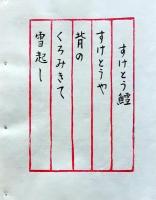 すけとう鱈
すけとうや
背の
くろみきて
雪起し